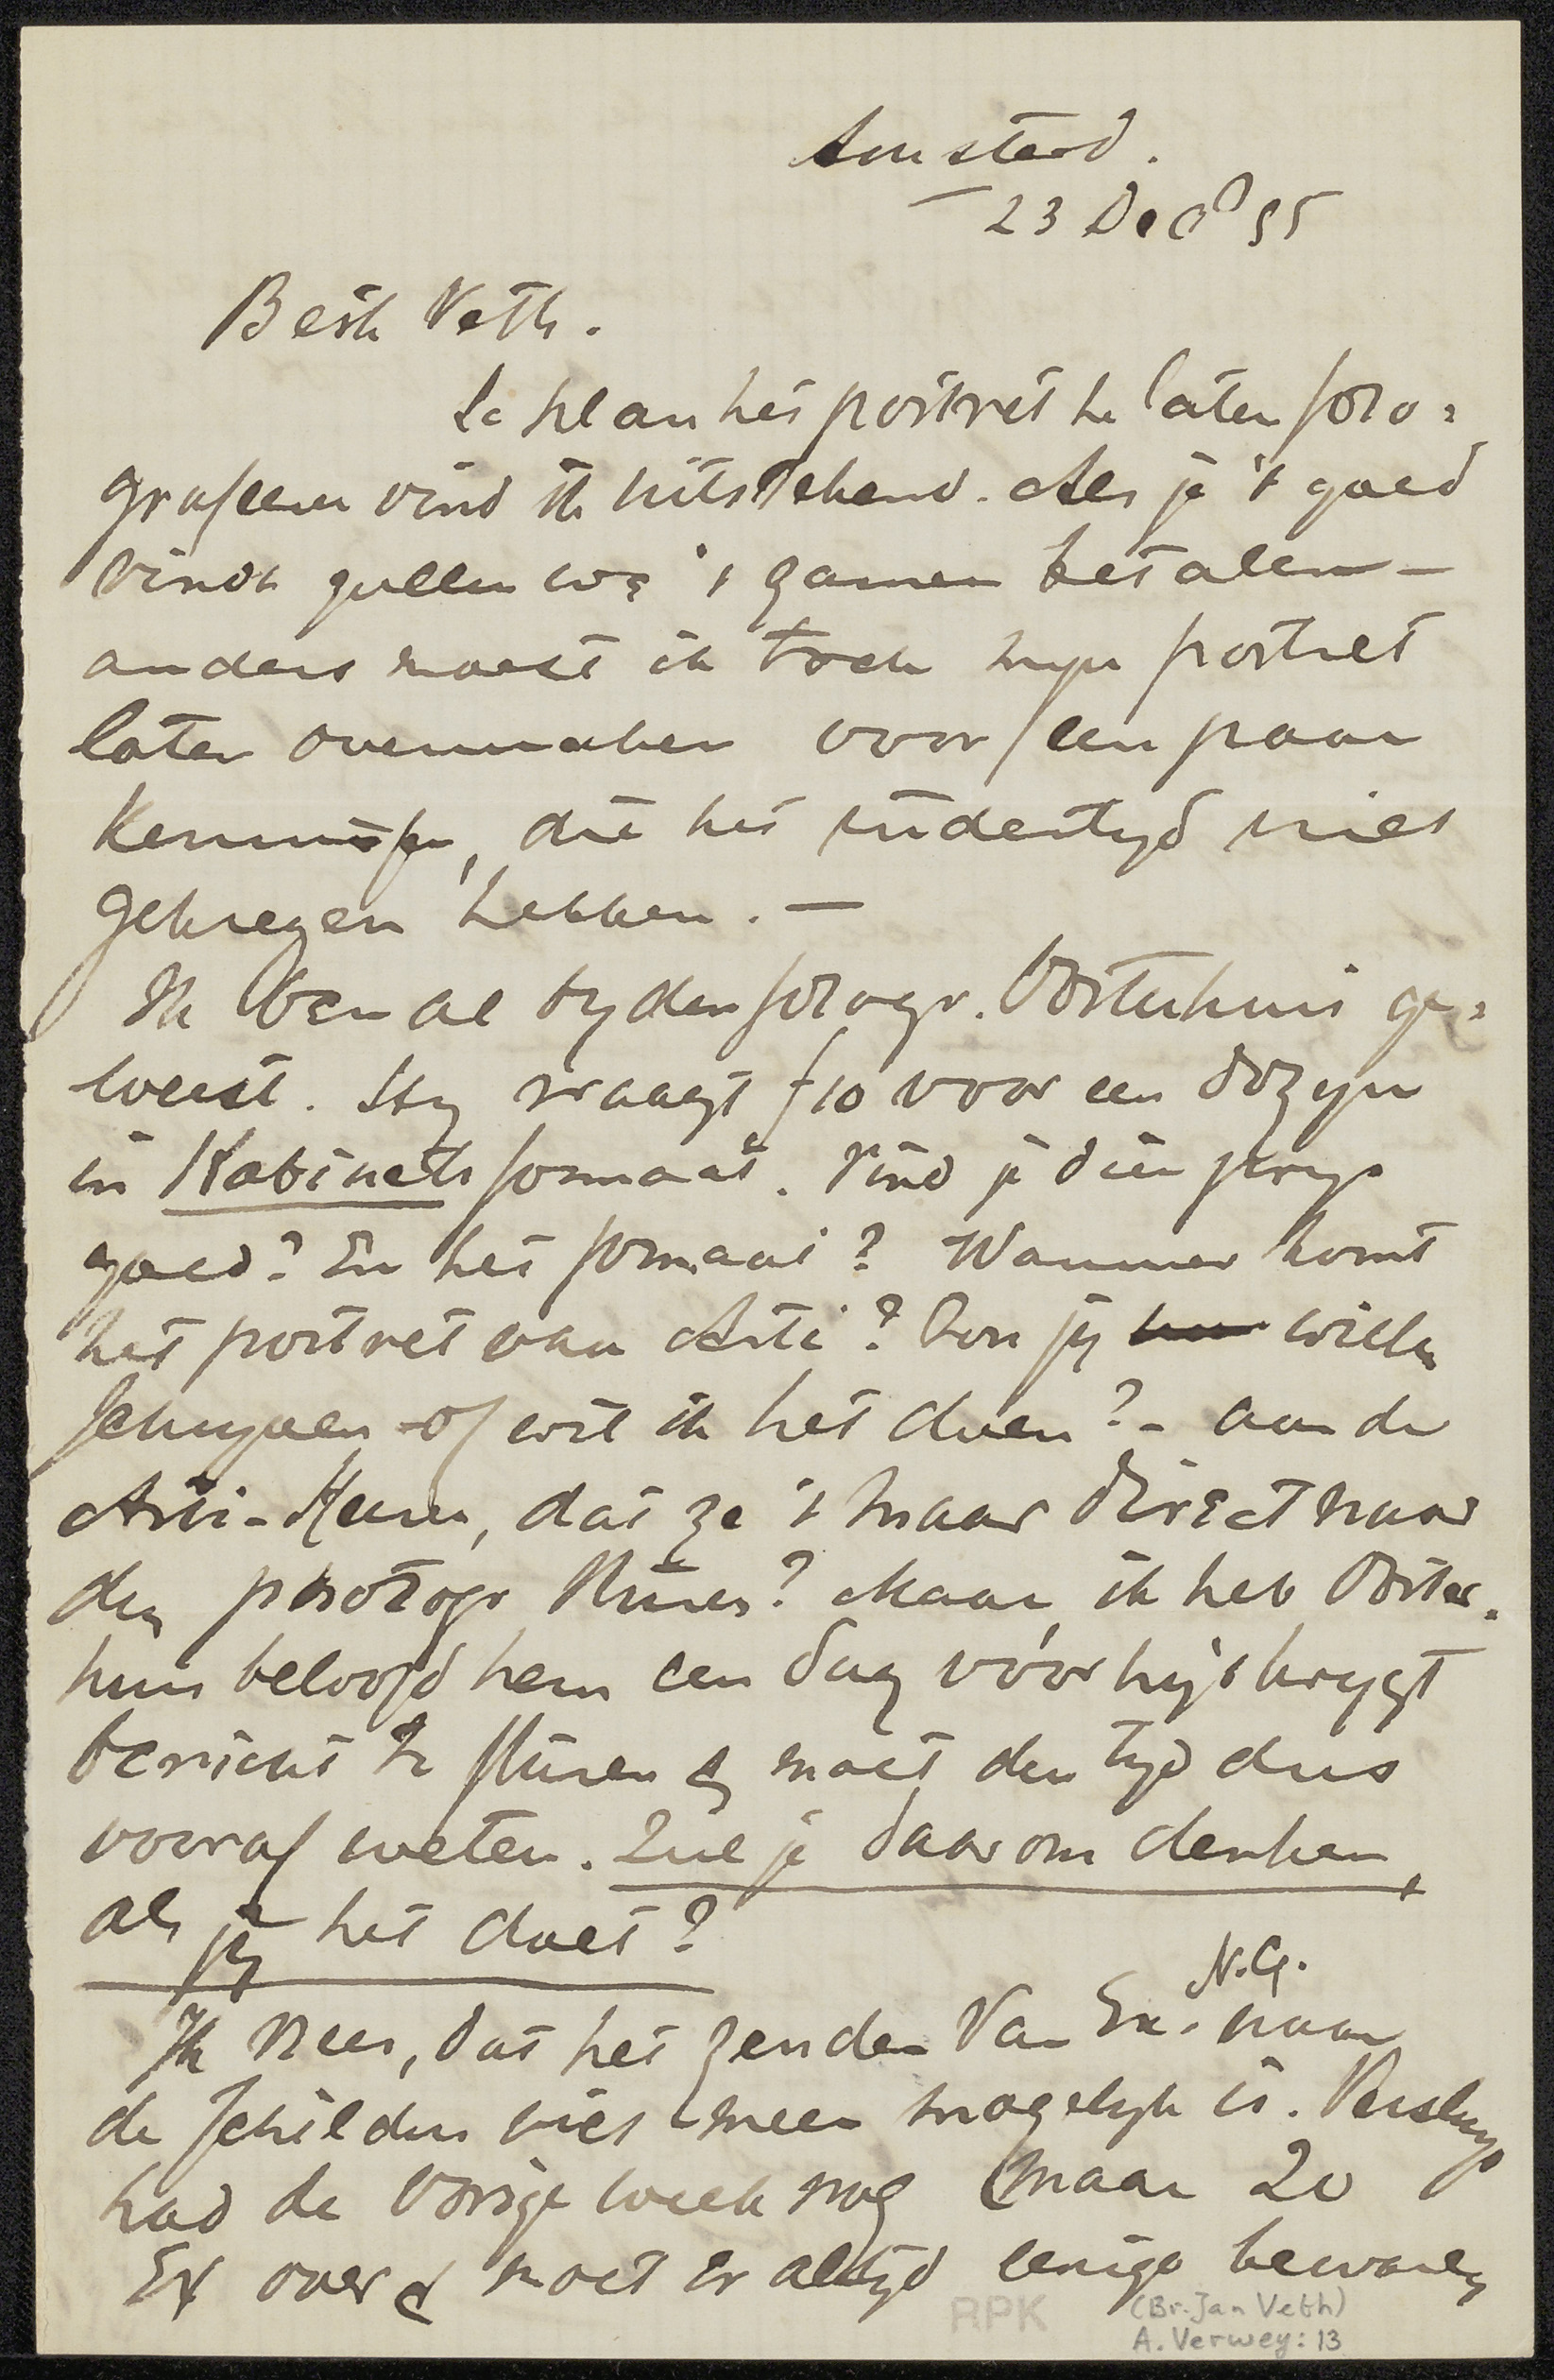 Amsterd.
23 Dec 85
Beste Veth.
Je plan het portret te laten foto=
grafeeren vind ik uitstekend. Als je 't goed
vindt zullen we 't zamen betalen –
anders moest ik toch mijn portret
laten overmaken voor een paar
kennissen, die het indertyd niet
gekregen hebben. –
Ik ben al by den fotogr. Oosterhuis ge=
weest. Hy vraagt f10 voor een dozyn
in Kabinets formaat. Vind je dien prys
goed? En het formaat? Wanneer komt
het portret van Arti? Zou jy willen
schryven – of wil ik het doen? – aan de
Arti-Heeren, dat ze 't maar direct naar
den photogr sturen? Maar ik heb Ooster-
huis beloofd hem een dag vóór hy 't krygt
bericht te sturen & moet den tyd dus
vooraf weten. Zul je daarom denken,
als jy het doet?
N.G.
Ik vrees, dat het zenden van Ex. naar
de schilders niet meer mogelyk is. Versluys
had de vorige week nog maar 20
Ex over & moet er altyd eenige bewaren
RPK
(Br. Jan Veth)
A. Verwey: 13